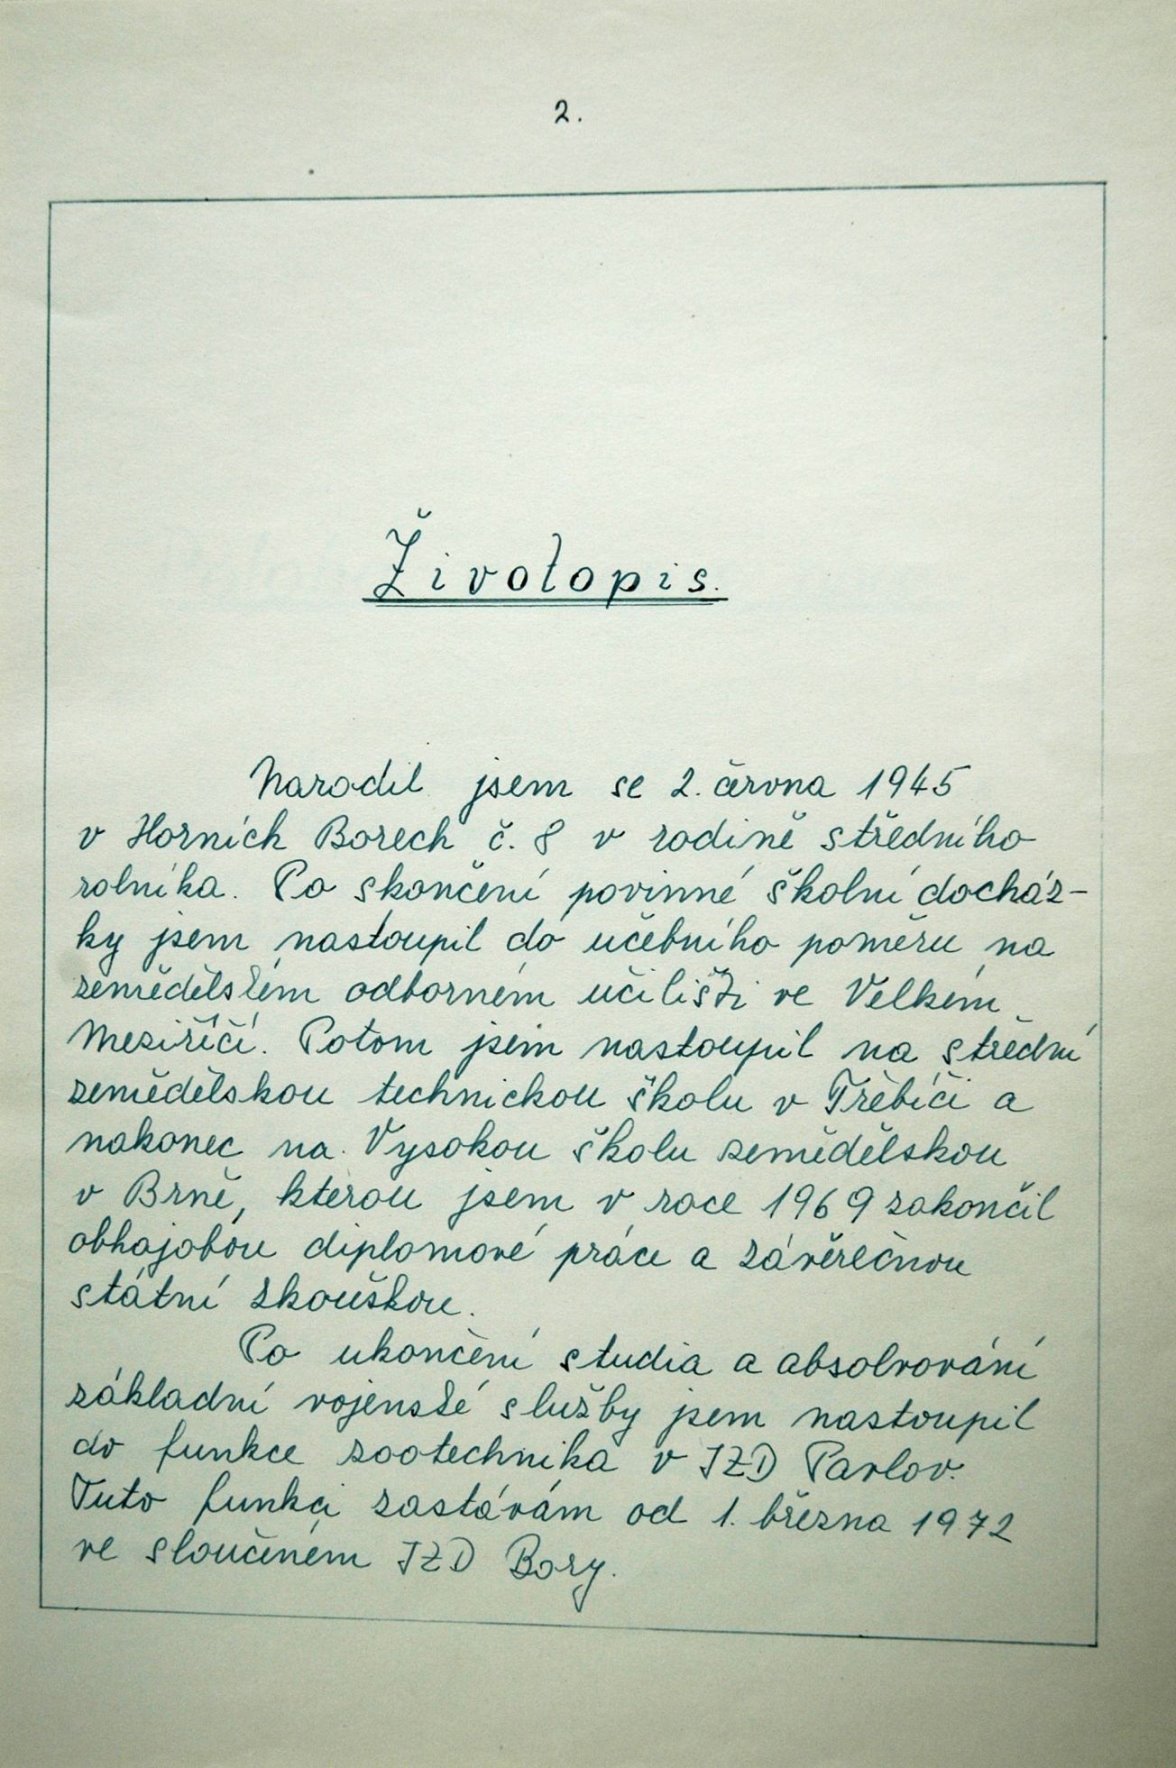 2.
Životopis.
Narodil jsem se 2. června 1945
v Horních Borech č. 8 v rodině středního
rolníka. Po skončení povinné školní docház-
ky jsem nastoupil do učebního poměru na
zemědělském odborném učilišti ve Velkém
Meziříčí. Potom jsem nastoupil na střední
zemědělskou technickou školu v Třebíči a
nakonec na Vysokou školu zemědělskou
v Brně, kterou jsem v roce 1969 zakončil
obhajobou diplomové práce a závěrečnou
státní zkouškou.
Po ukončení studia a absolvování
základní vojenské služby jsem nastoupil
do funkce zootechnika v JZD Pavlov.
Tuto funkci zastávám od 1. března 1972
ve sloučeném JZD Bory.